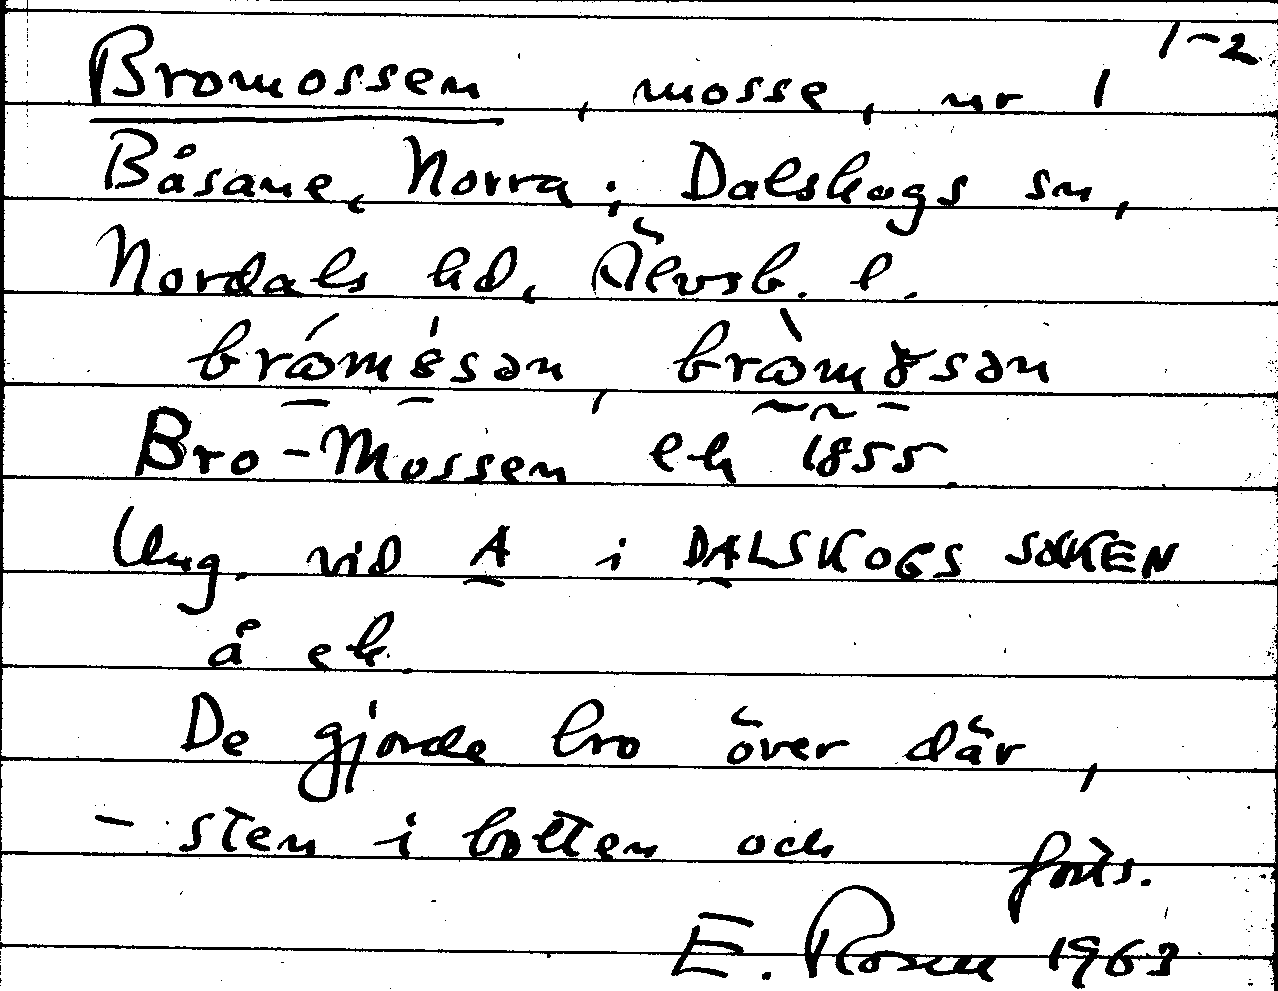 1-2
Bromossen, mosse, nr 1
Båsane, Norra; Dalskogs sn,
Nordals hd, Älvsb. l.
Bro-Mossen ek 1855.
Ung. vid A i DALSKOGS SOCKEN
å ek.
De gjorde bro över där,
- sten i botten och forts.
E. Rosen 1963